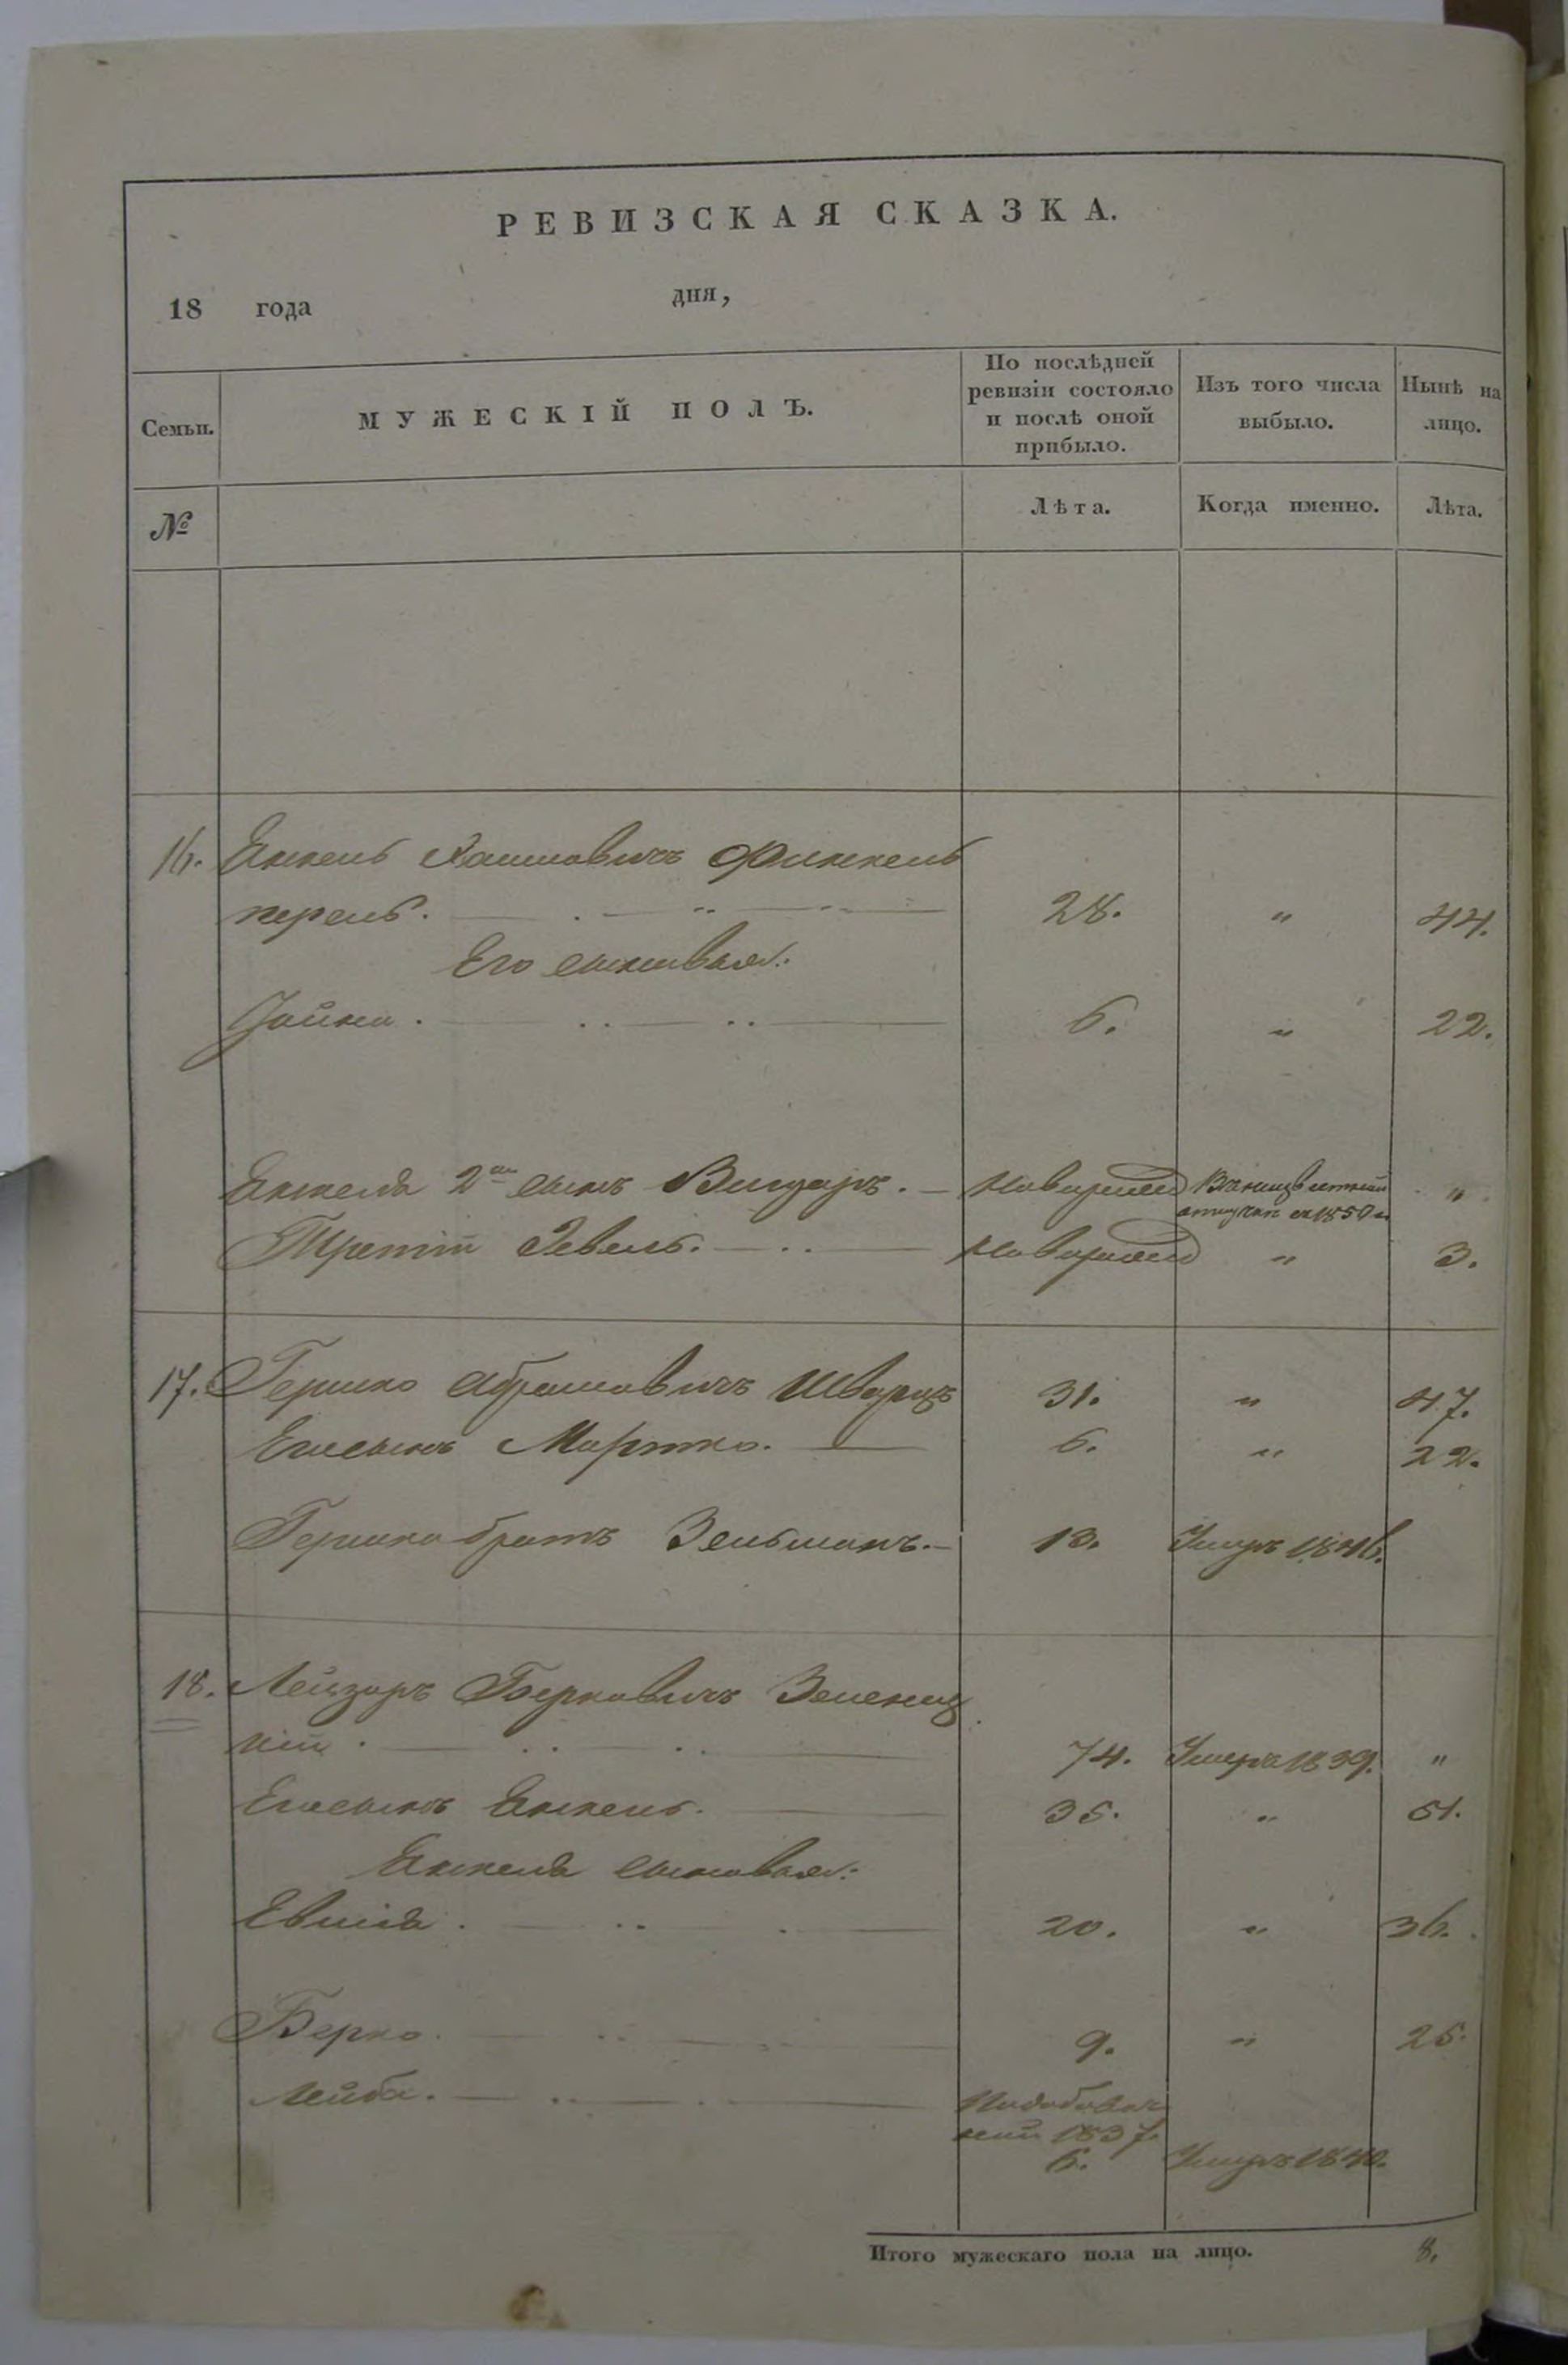 РЕВИЗСКАЯ СКАЗКА.
18 года дня,
Семьи. МУЖЕСКІЙ ПОЛЪ. По послѣдней ревизіи состояло и послѣ оной прибыло. Изъ того числа выбыло. Нынѣ на лицо.
№ Лѣта. Когда именно. Лѣта.
16. Янкель Хаимовичъ Финкель
перель. 28. " 44.
Его сыновья:
6. " 22.
Янкеля 2й сынъ новорожд "
Третій новорожд " 3.
17. Гершко Абрамовичъ Шварцъ 31. " 47.
Его сынъ Мортко. 6. " 22.
Гершка братъ Зельманъ. 13. Умеръ 1846.
18. Лейзоръ Берковичъ Зелениц
кій. 74. Умеръ 1839. "
Его сынъ Янкель. 35. " 51.
Янкеля сыновья:
20. " 36.
Берко. 9. " 25.
Лейба.
1837.
6. Умеръ 1840.
Итого мужескаго пола на лицо. 8.